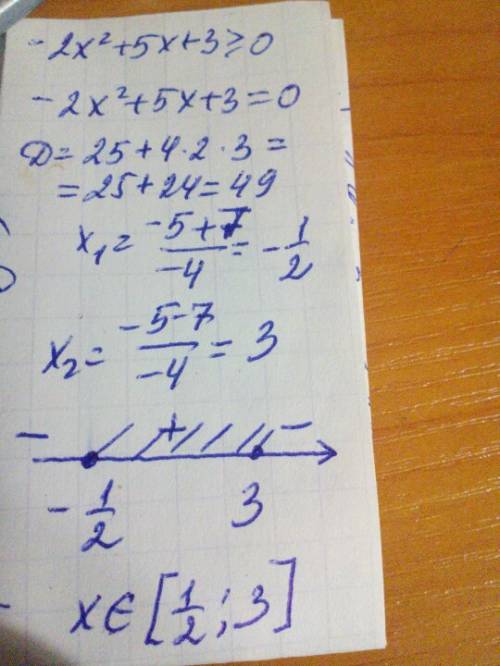 -2x²+5x+3≥0
-2x²+5x+3=0
D=25+4·2·3=
=25+24=49
x₁=(-5+7)/(-4)=-1/2
x₂=(-5-7)/(-4)=3
- + -
-1/2 3
x∈[1/2;3]